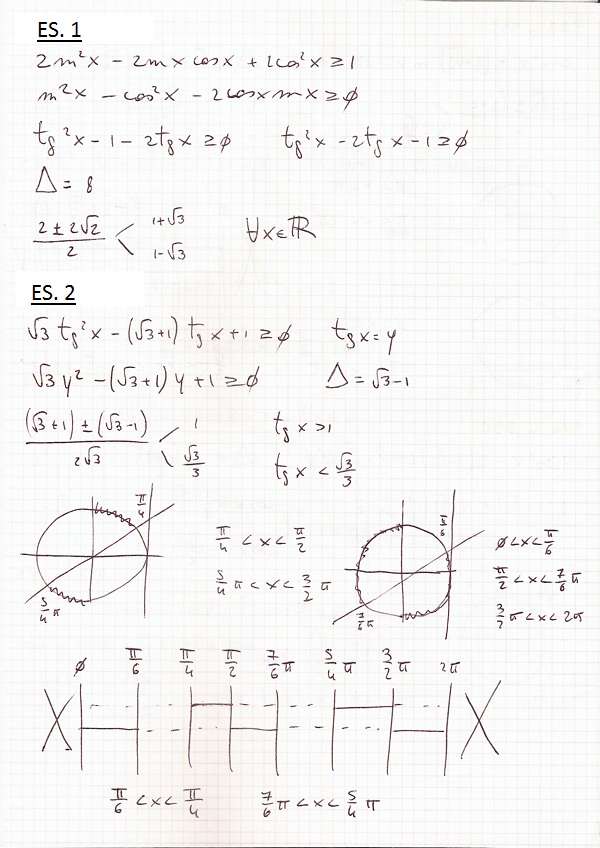 ES. 1
2 sin²x - 2 sin x cos x + 2 cos²x ≥ 1
sin²x - cos²x - 2 cos x sin x ≥ ø
tg²x - 1 - 2tg x ≥ ø tg²x - 2tg x - 1 ≥ ø
Δ = 8
(2 ± 2√2)/2 < 1+√3 1-√3 ∀x∈ℝ
ES. 2
√3 tg²x - (√3+1) tg x + 1 ≥ ø tg x = y
√3 y² - (√3+1) y + 1 ≥ ø Δ = √3-1
((√3+1) ± (√3-1))/2√3 < 1 √3/3
tg x > 1
tg x < √3/3
π/4
5/4 π
π/4 < x < π/2
5/4 π < x < 3/2 π
7/6 π
ø < x < π/6
π/2 < x < 7/6 π
3/2 π < x < 2π
ø π/6 π/4 π/2 7/6 π 5/4 π 3/2 π 2π
π/6 < x < π/4 7/6 π < x < 5/4 π